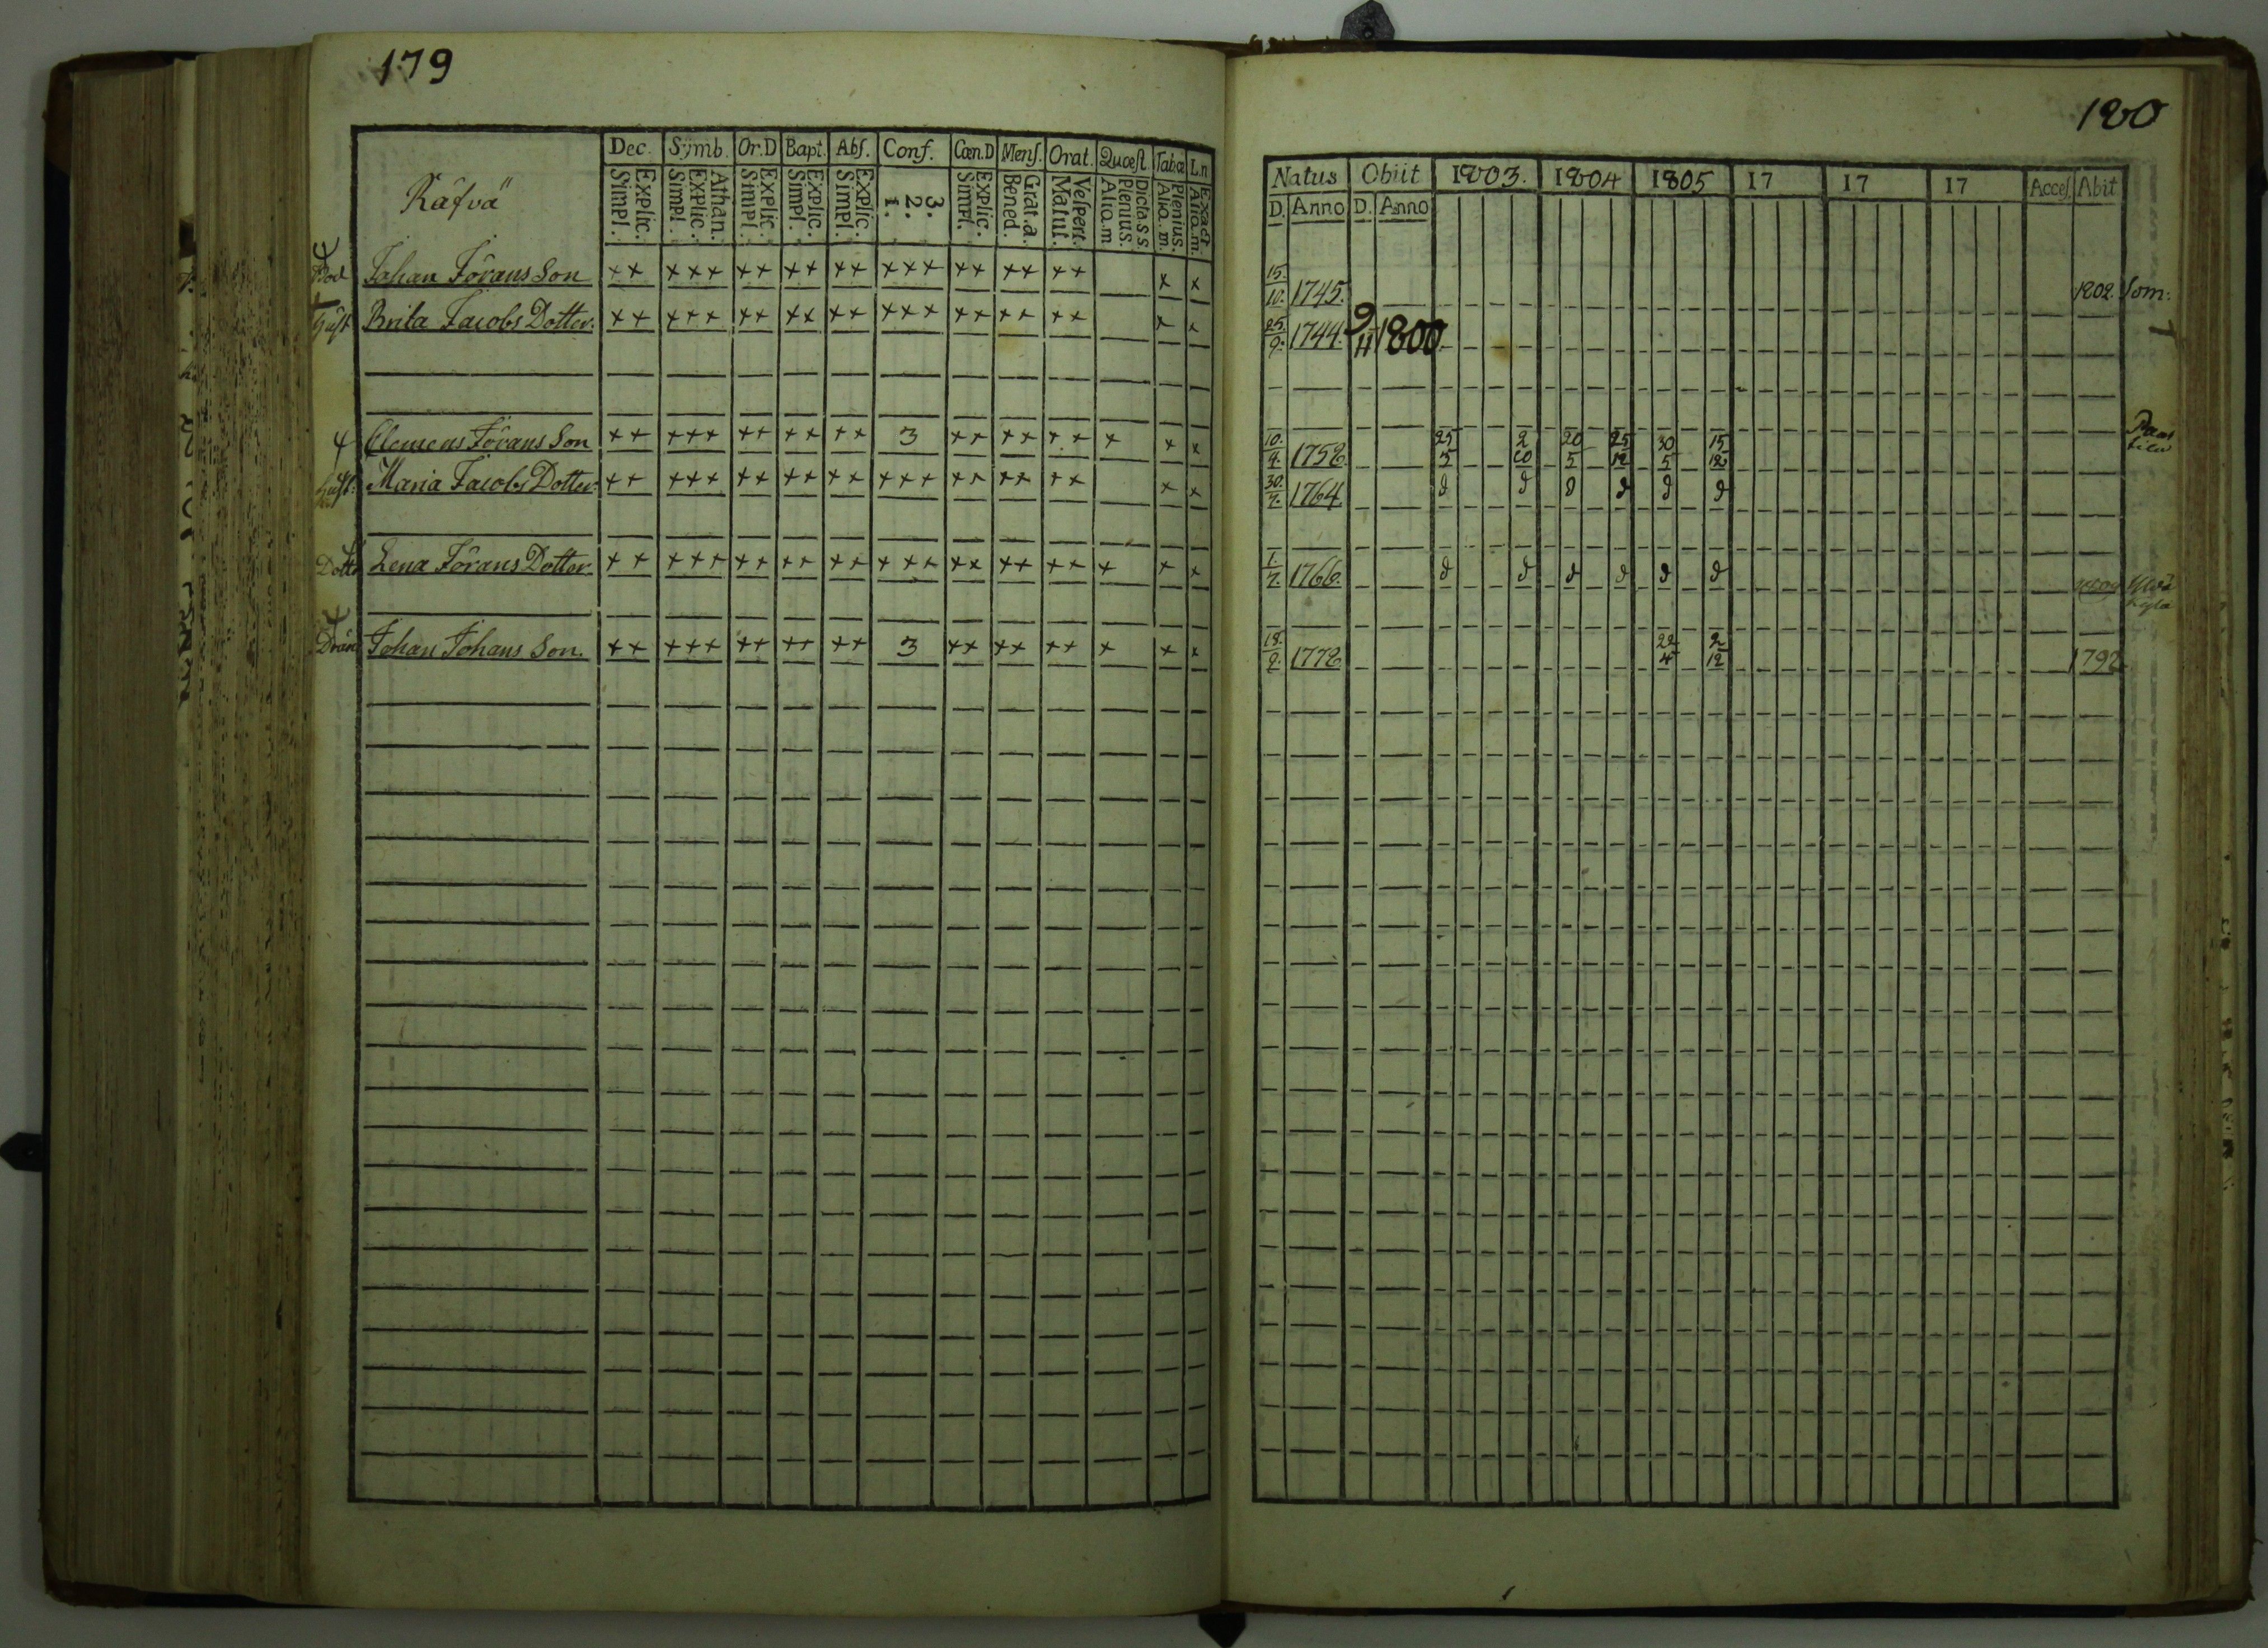 179
Dec. Symb. Or.D Bapt. Abs. Conf. Cœn.D Mens. Orat. Quæst. Tabæ L.n
Räfvä
Simpl. Explic. Simpl. Explic. Athan. Simpl. Explic. Simpl. Explic. Simpl. Explic. 1. 2. 3. Simpl. Explic. Bened. Grat.a. Matut. Vespert. Alio.m Plenius. Dicta.s.s Alio.m. Plenius. Alio.m. Exact
Johan Jörans Son ×× ××× ×× ×× ×× ××× ×× ×× ×× × ×
Hust Brita Jacobs Dotter. ×× ××× ×× ×× ×× ××× ×× ×× ×× × ×
Clemens Jörans Son ×× ××× ×× ×× ×× 3 ×× ×× ×× × × ×
Hust: Maria Jacobs Dotter. ×× ××× ×× ×× ×× ××× ×× ×× ×× × ×
Dott Lena Jörans Dotter. ×× ××× ×× ×× ×× ××× ×× ×× ×× × × ×
Drän Johan Johans Son. ×× ××× ×× ×× ×× 3 ×× ×× ×× × × ×
180
Natus Obiit 1803. 1804 1805 17 17 17 Acces. Abit
D. Anno D. Anno
15/10. 1745. 1802. Som:
25/9. 1744. 9/11 1800
10/4. 1758. 25/5 2/10 20/5 25/12 30/5 15/12
30/7. 1764. d d d d d d
1/7. 1766. d d d d d d
18/9. 1772 22/4 2/12 1792